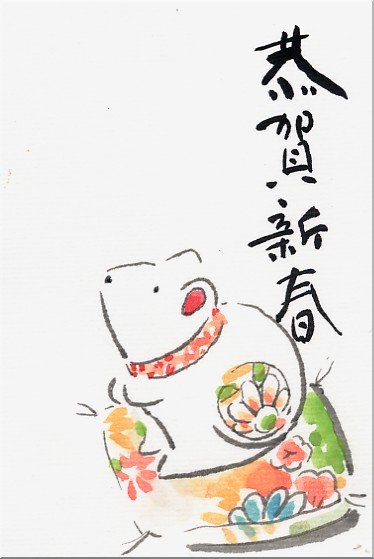 恭賀新春